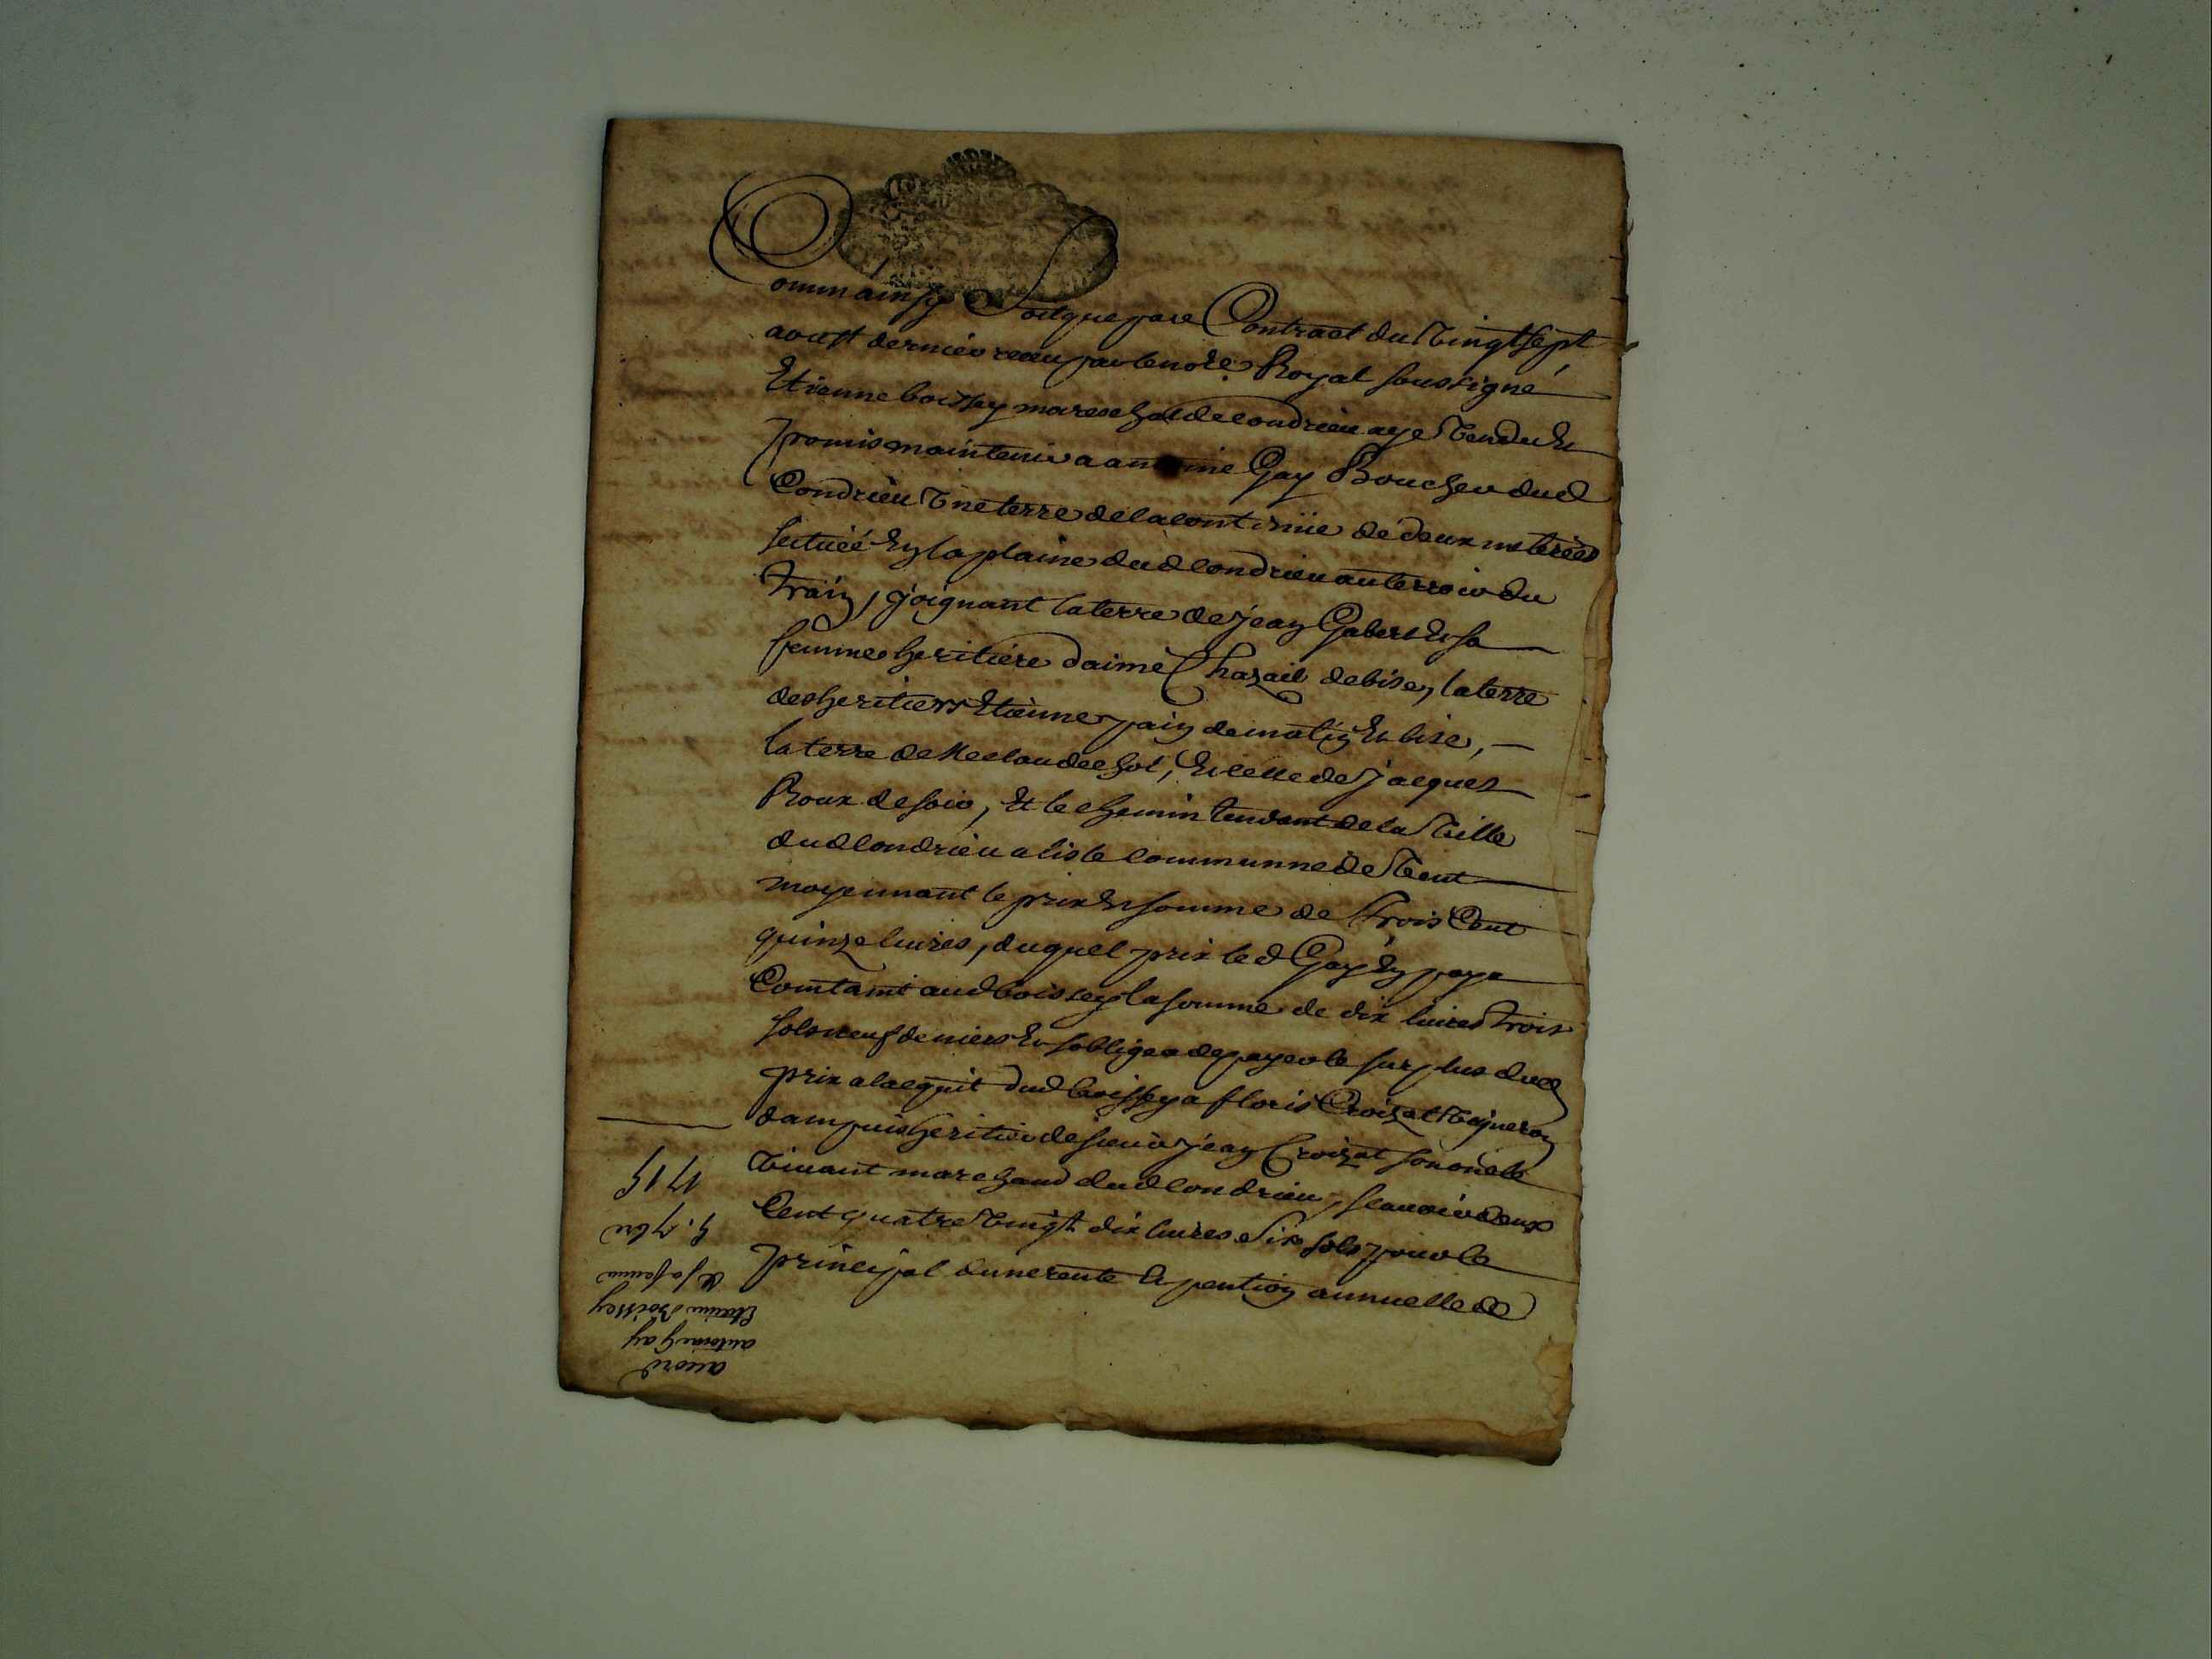 Comm ainsy Soit que par Contract du Vingt sept
aoust dernier receu par le notre Royal soussigné
Etienne boissey mareschal de condrieu aye Vendu Et
promis maintenir a antoine Gay Boucher dud
Condrieu Vne terre de la contenüe de deux meterées
scituéé En la plaine dud condrieu au terroir du
Train, joignant la terre de jean Gabert Et sa
femme heritiére daimé Chazail de bise, la terre
des heritiers Etienne pain de matin Et bise,
la terre de Me claude Et celle de jacques
Roux de soir, Et le chemin tendant de la Ville
dud condrieu a lisle communne de Vent
moyennant le prix Et somme de Trois Cent
quinze livres, duquel prix led Gay En paya
Comtant aud boissey la somme de dix livres trois
sols neuf deniers Et sobligea de payer le surplus dud
prix a lacquit dud boissey a floris Croizat Vigneron
dampuis heritier de sieur jean Croizat son oncle
Vivant marchand dud condrieu, scauoir deux
Cent quatre Vingt dix livres six sols pour le
principal dune rente Et pention annuelle de
acord
antoine Gay
Etienne Boissey
& sa femme
7bre
1715